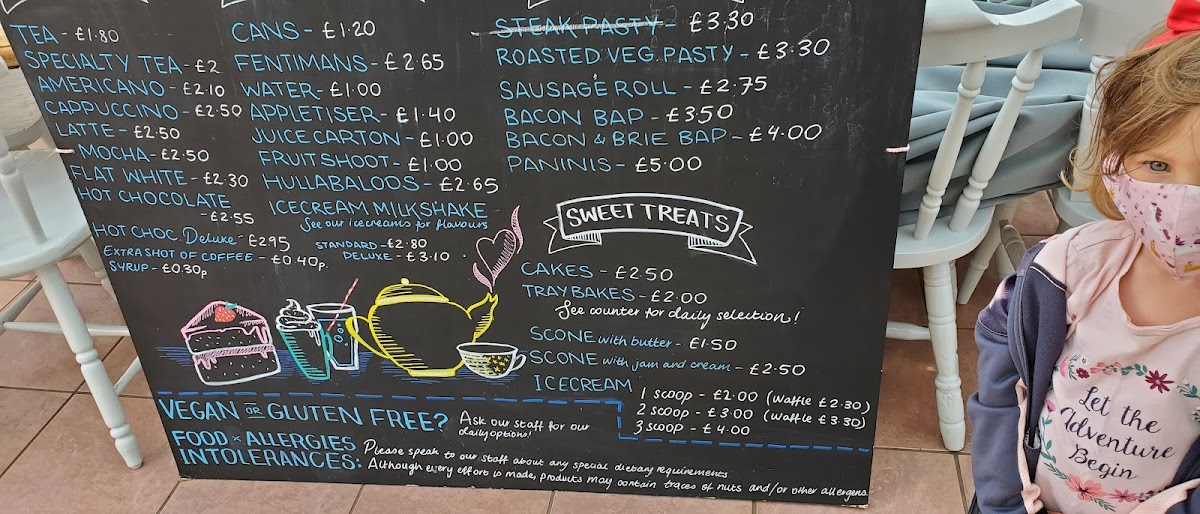 TEA - £1.80
SPECIALTY TEA - £2
AMERICANO - £2.10
CAPPUCCINO - £2.50
LATTE - £2.50
MOCHA - £2.50
FLAT WHITE - £2.30
HOT CHOCOLATE
- £2.55
HOT CHOC. Deluxe - £2.95
EXTRA SHOT OF COFFEE - £0.40p.
SYRUP - £0.30p
CANS - £1.20
FENTIMANS - £2.65
WATER - £1.00
APPLETISER - £1.40
JUICE CARTON - £1.00
FRUITSHOOT - £1.00
HULLABALOOS - £2.65
ICECREAM MILKSHAKE
See our icecreams for flavours
STANDARD - £2.80
DELUXE - £3.10
STEAK PASTY - £3.30
ROASTED VEG. PASTY - £3.30
SAUSAGE ROLL - £2.75
BACON BAP - £3.50
BACON & BRIE BAP - £4.00
PANINIS - £5.00
SWEET TREATS
CAKES - £2.50
TRAYBAKES - £2.00
See counter for daily selection!
SCONE with butter - £1.50
SCONE with jam and cream - £2.50
ICECREAM
1 SCOOP - £2.00 (Waffle £2.30)
2 SCOOP - £3.00 (Waffle £3.30)
3 SCOOP - £4.00
VEGAN OR GLUTEN FREE? Ask our staff for our
daily options!
FOOD × ALLERGIES
INTOLERANCES:
Please speak to our staff about any special dietary requirements
Although every effort is made, products may contain traces of nuts and/or other allergens.
Let the
Adventure
Begin